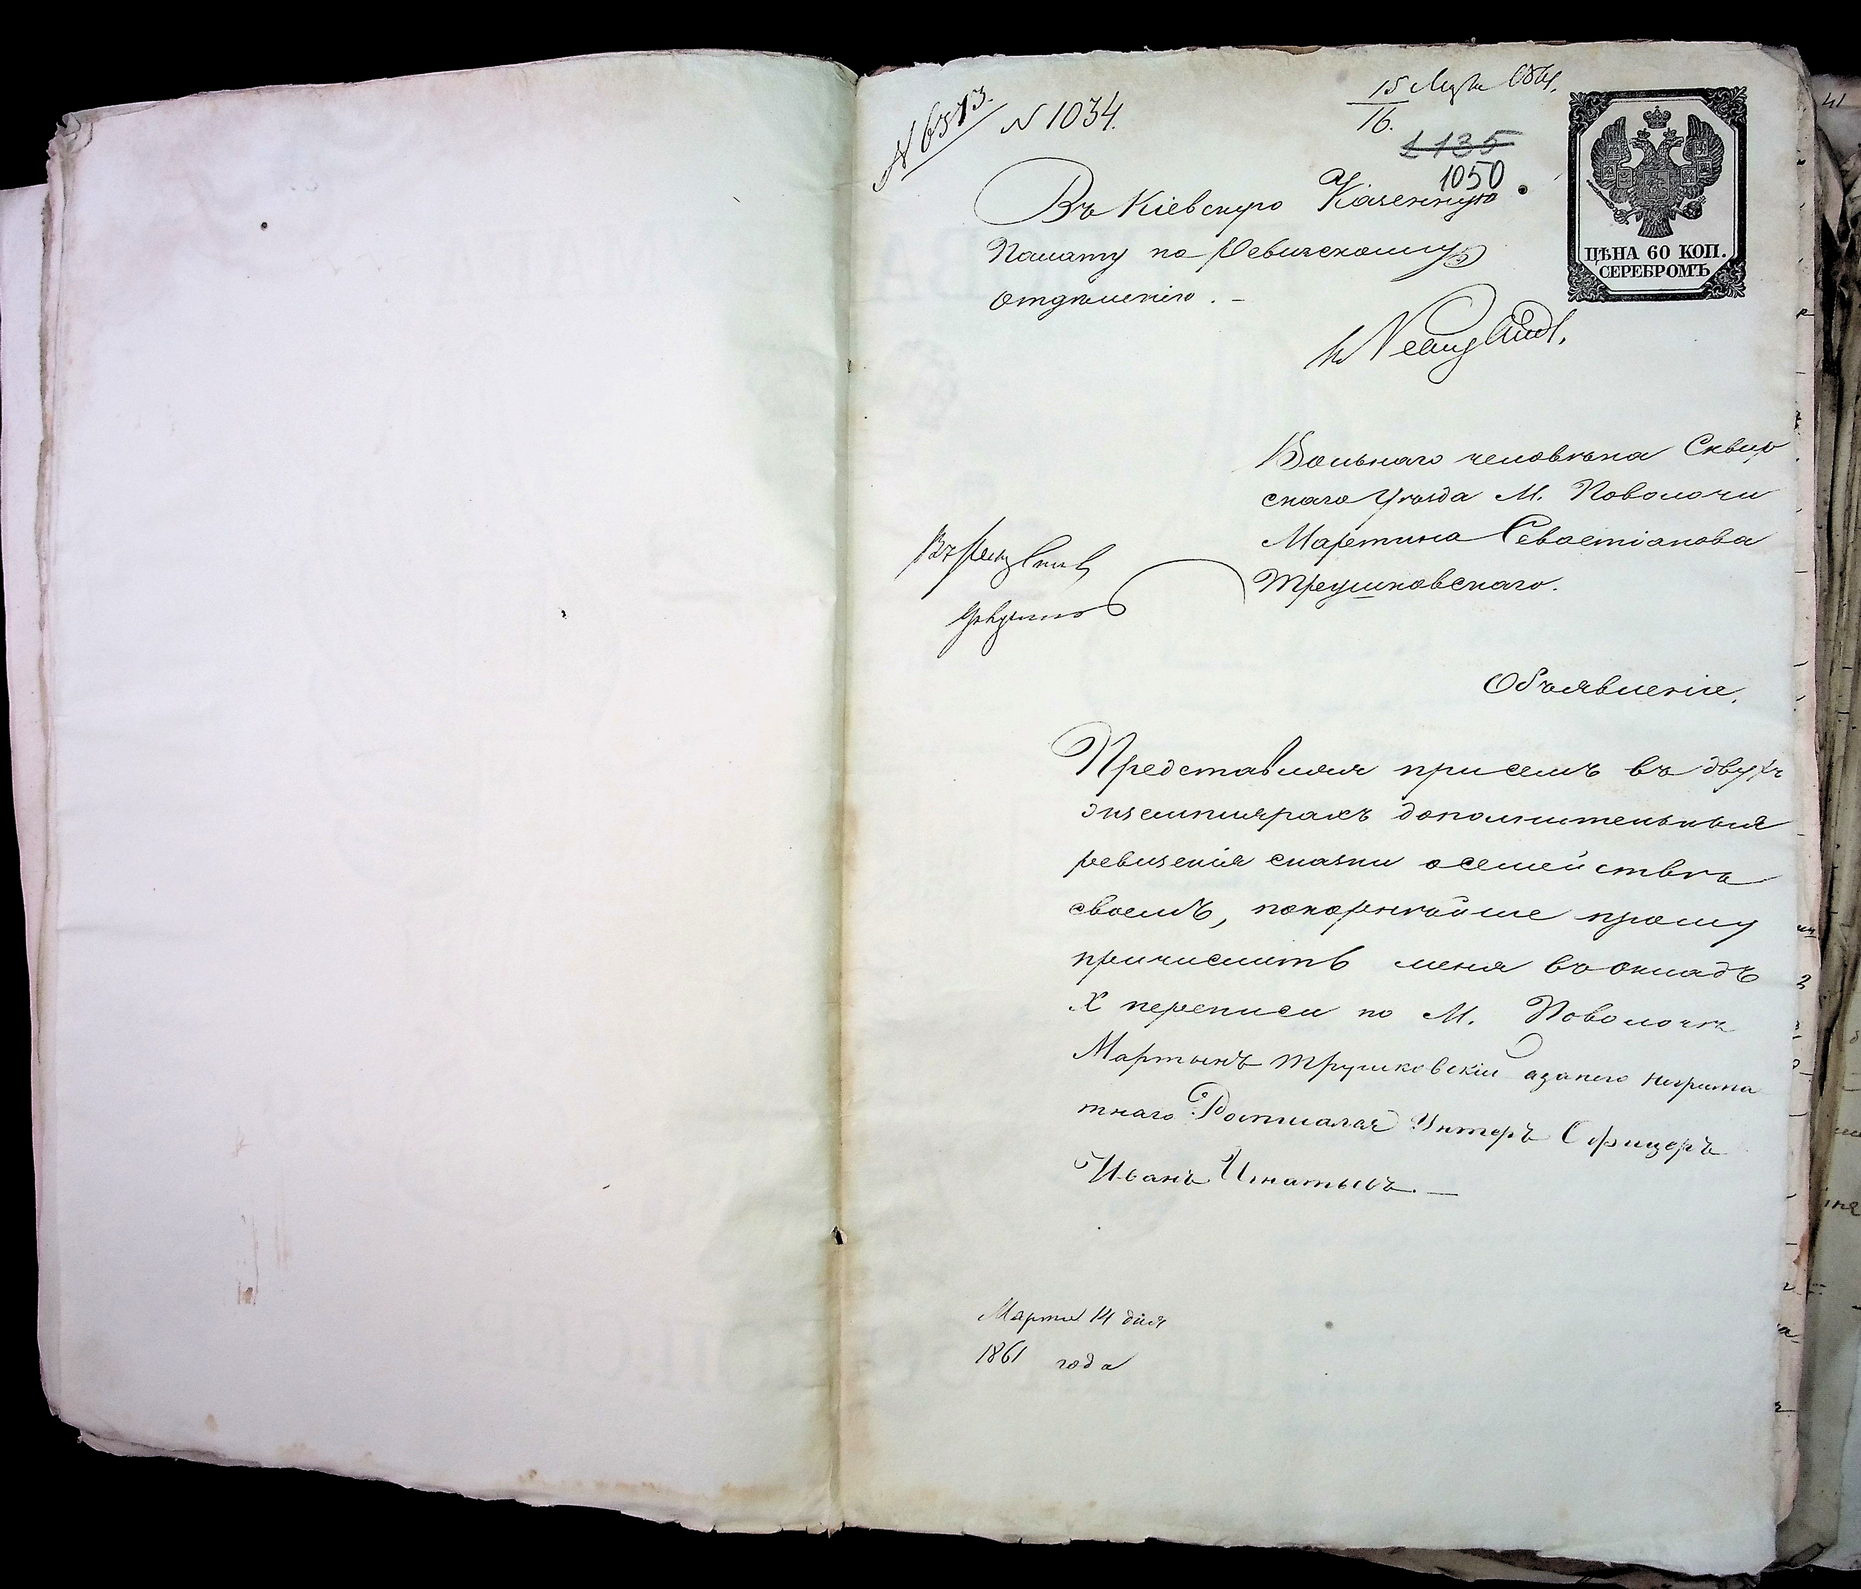 № 6513.
№ 1034.
15 Марта 1861.
16.
1135
1050
ЦѢНА 60 КОП.
СЕРЕБРОМЪ
Въ Кіевскую Казенную
Палату по Ревизскому
отдѣленію. —
Вольнаго человѣка Сквир
скаго Уѣзда М. Паволочи
Мартина Севастіанова
Трушковскаго.
Объявленіе.
Представляя при семъ въ двухъ
экземплярахъ дополнительныя
ревизскія сказки о семействѣ
своемъ, покорнѣйше прошу
причислить меня въ окладъ
X переписи по М. Поволочѣ
Мартынъ Трушковскій а за него неграмо
тнаго Росписался Унтеръ Офицеръ
Иванъ Игнатьевъ. —
Марта 14 дня
1861 года